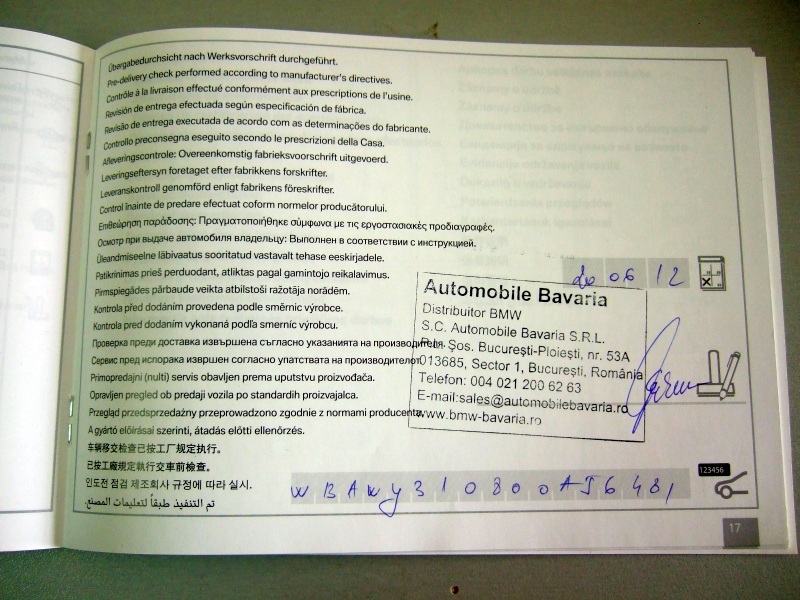 Übergabedurchsicht nach Werksvorschrift durchgeführt.
Pre-delivery check performed according to manufacturer's directives.
Contrôle à la livraison effectué conformément aux prescriptions de l'usine.
Revisión de entrega efectuada según especificación de fábrica.
Revisão de entrega executada de acordo com as determinações do fabricante.
Controllo preconsegna eseguito secondo le prescrizioni della Casa.
Afleveringscontrole: Overeenkomstig fabrieksvoorschrift uitgevoerd.
Leveringseftersyn foretaget efter fabrikkens forskrifter.
Leveranskontroll genomförd enligt fabrikens föreskrifter.
Control înainte de predare efectuat coform normelor producătorului.
Επιθεώρηση παράδοσης: Πραγματοποιήθηκε σύμφωνα με τις εργοστασιακές προδιαγραφές.
Осмотр при выдаче автомобиля владельцу: Выполнен в соответствии с инструкцией.
Üleandmiseelne läbivaatus sooritatud vastavalt tehase eeskirjadele.
Patikrinimas prieš perduodant, atliktas pagal gamintojo reikalavimus.
Pirmspiegādes pārbaude veikta atbilstoši ražotāja norādēm.
Kontrola před dodáním provedena podle směrnic výrobce.
Kontrola pred dodaním vykonaná podľa smerníc výrobcu.
Проверка преди доставка извършена съгласно указанията на производителя.
Сервис пред испорака извршен согласно упатствата на производителот.
Primopredajni (nulti) servis obavljen prema uputstvu proizvođača.
Opravljen pregled ob predaji vozila po standardih proizvajalca.
Przegląd przedsprzedażny przeprowadzono zgodnie z normami producenta.
A gyártó előírásai szerinti, átadás előtti ellenőrzés.
车辆移交检查已按工厂规定执行。
已按工廠規定執行交車前檢查。
인도전 점검 제조회사 규정에 따라 실시.
تم التنفيذ طبقاً لتعليمات المصنع.
06 12
Automobile Bavaria
Distribuitor BMW
S.C. Automobile Bavaria S.R.L.
Şos. Bucureşti-Ploieşti, nr. 53A
013685, Sector 1, Bucureşti, România
Telefon: 004 021 200 62 63
E-mail:sales@automobilebavaria.ro
www.bmw-bavaria.ro
123456
17